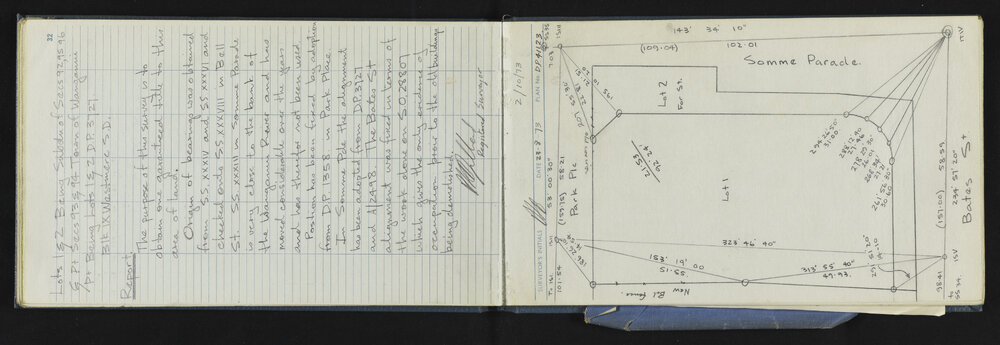 32
Lots 1 & 2 Being Subdn of Secs 92 95 96
& Pt Secs 93 & 94 Town of Wanganui
Being Lots 1 & 2 D.P. 3127
Blk X Westmere S.D.
Report
The purpose of this survey is to
obtain one guaranteed title to this
area of land.
Origin of bearings was obtained
from SS XXXIV and SS XXXVI and
checked onto SS XXXVIII in Bell
St. SS XXXIII in Somme Parade
is very close to the bank of
the Wanganui River and has
moved considerable over the years
and has therefor not been used
Position has been fixed by adoption
from D.P. 1358 in Park Place
In Somme Pde the alignment
has been adopted from D.P. 3727
and A/2498. The Bates St
alignment was fixed in terms of
the work done on S.O. 25807
which gives the only evidence of
occupation prior to the old buildings
being demolished.
Registered Surveyor
2/10/73
SURVEYOR'S INITIALS
DATE 23-8-73
PLAN No. D.P. 41123
143° 34' 10"
(109.04)
102.01
Somme Parade.
ITIV
7.03
Lot 2
For St.
2153
92 24
Park Plc.
53° 00' 30"
(159.75) 58.21
Lot 1
294° 26' 50"
31.00
288° 12' 40"
27.46
278° 29' 30"
26.01
268° 34'
27.21
261° 56' 30"
30.60
58.99
(157.00)
234° 51' 20"
Bates St
323° 46' 40"
00
55.15
New Bd fence.
313° 55' 40"
49.63
291° 51' 20"
14.10
ISV
98.41
to
SS 34.
To ISI
101.54